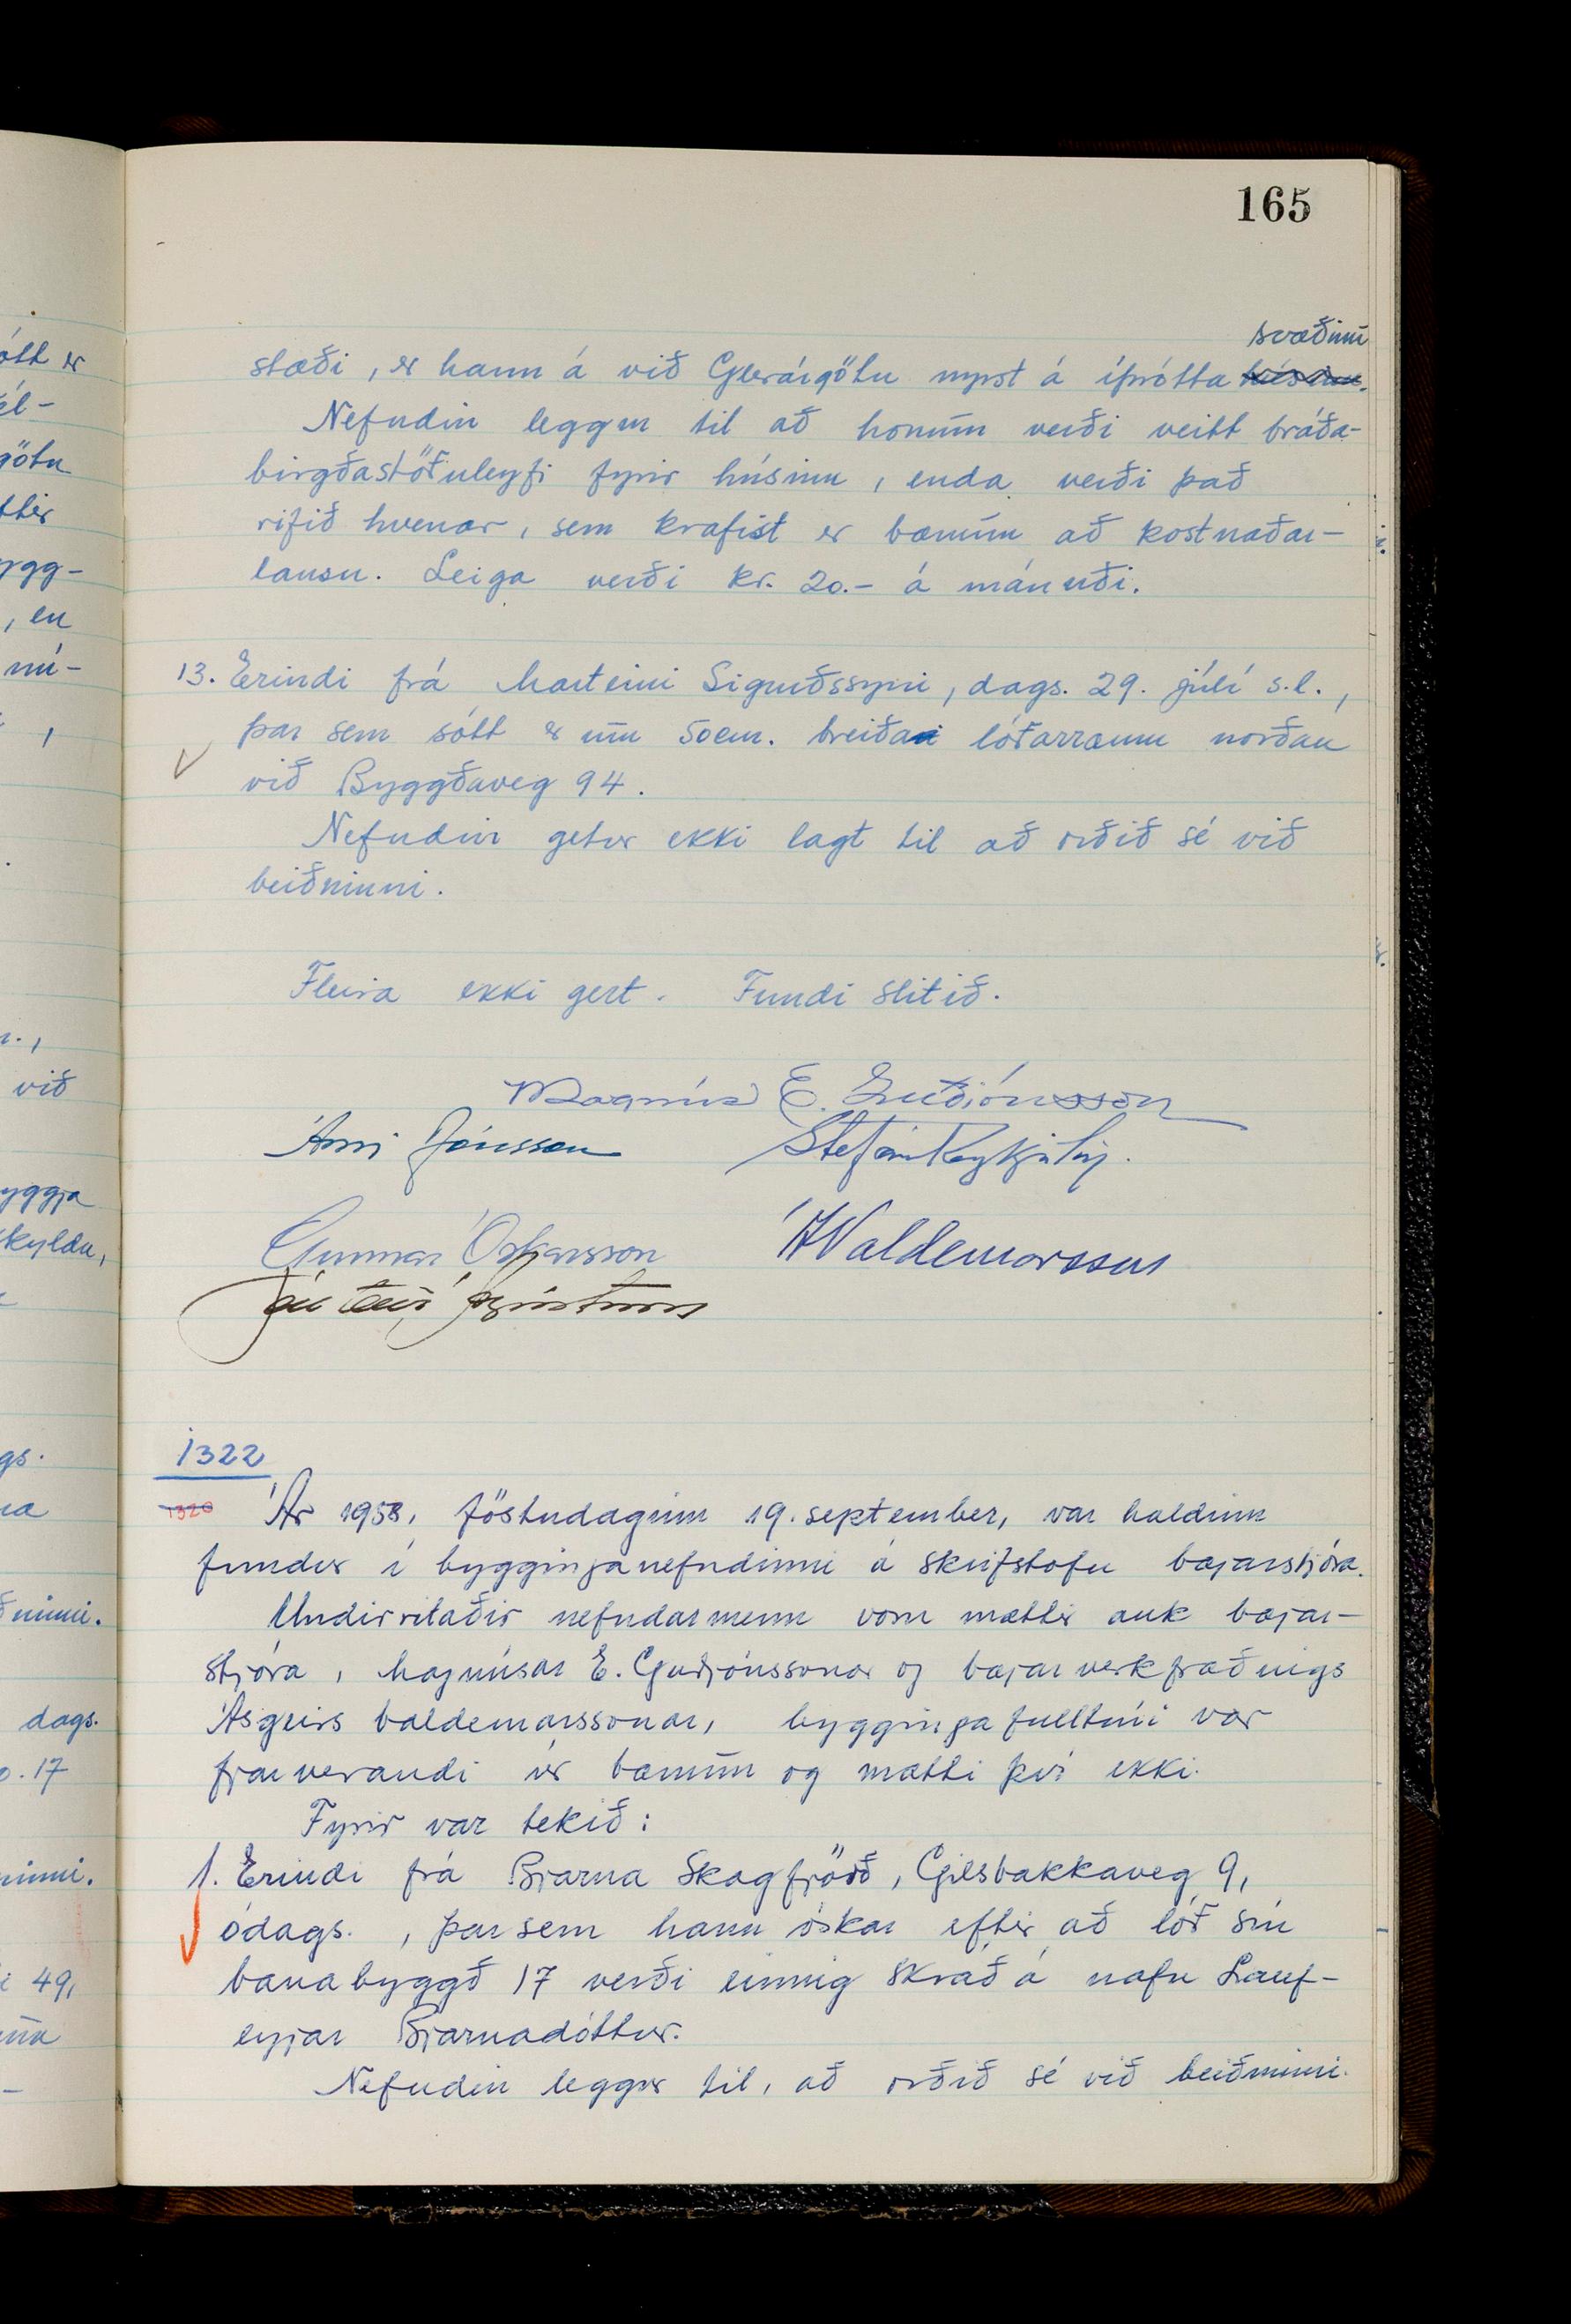 165
stæði, er hann á við Glerárgötu nyrst á íþróttasvæðinu
Nefndin leggur til að honum verði veitt bráða-
birgðastöðuleyfi fyrir húsinu, enda verði það
rifið hvenær, sem krafist er bænum að kostnaðar-
lausu. Leiga verði kr. 20.- á mánuði.
13. Erindi frá Marteini Sigurðssyni, dags. 29. júlí s.l.,
þar sem sótt er um 50 cm. breiðan lóðarramm norðan
við Byggðaveg 94.
Nefndin getur ekki lagt til að orðið sé við
beiðninni.
Fleira ekki gert. Fundi slitið.
Magnús E. Guðjónsson
Árni Jónsson Stefán Reykjalín.
Gunnar Óskarsson Á Valdemarsson
1322
1320 Ár 1958, föstudaginn 19. september, var haldinn
fundur í bygginganefndinni á skrifstofu bæjarstjóra.
Undirritaðir nefndarmenn voru mættir auk bæjar-
stjóra, Magnúsar E. Guðjónssonar og bæjarverkfræðings
Ásgeirs Valdemarssonar, byggingafulltrúi var
fjarverandi úr bænum og mætti því ekki.
Fyrir var tekið:
1. Erindi frá Bjarna Skagfjörð, Gilsbakkaveg 9,
ódags., þar sem hann óskar eftir að lóð sín
Ránabyggð 17 verði einnig skráð á nafn Lauf-
eyjar Bjarnadóttur.
Nefndin leggur til, að orðið sé við beiðninni.